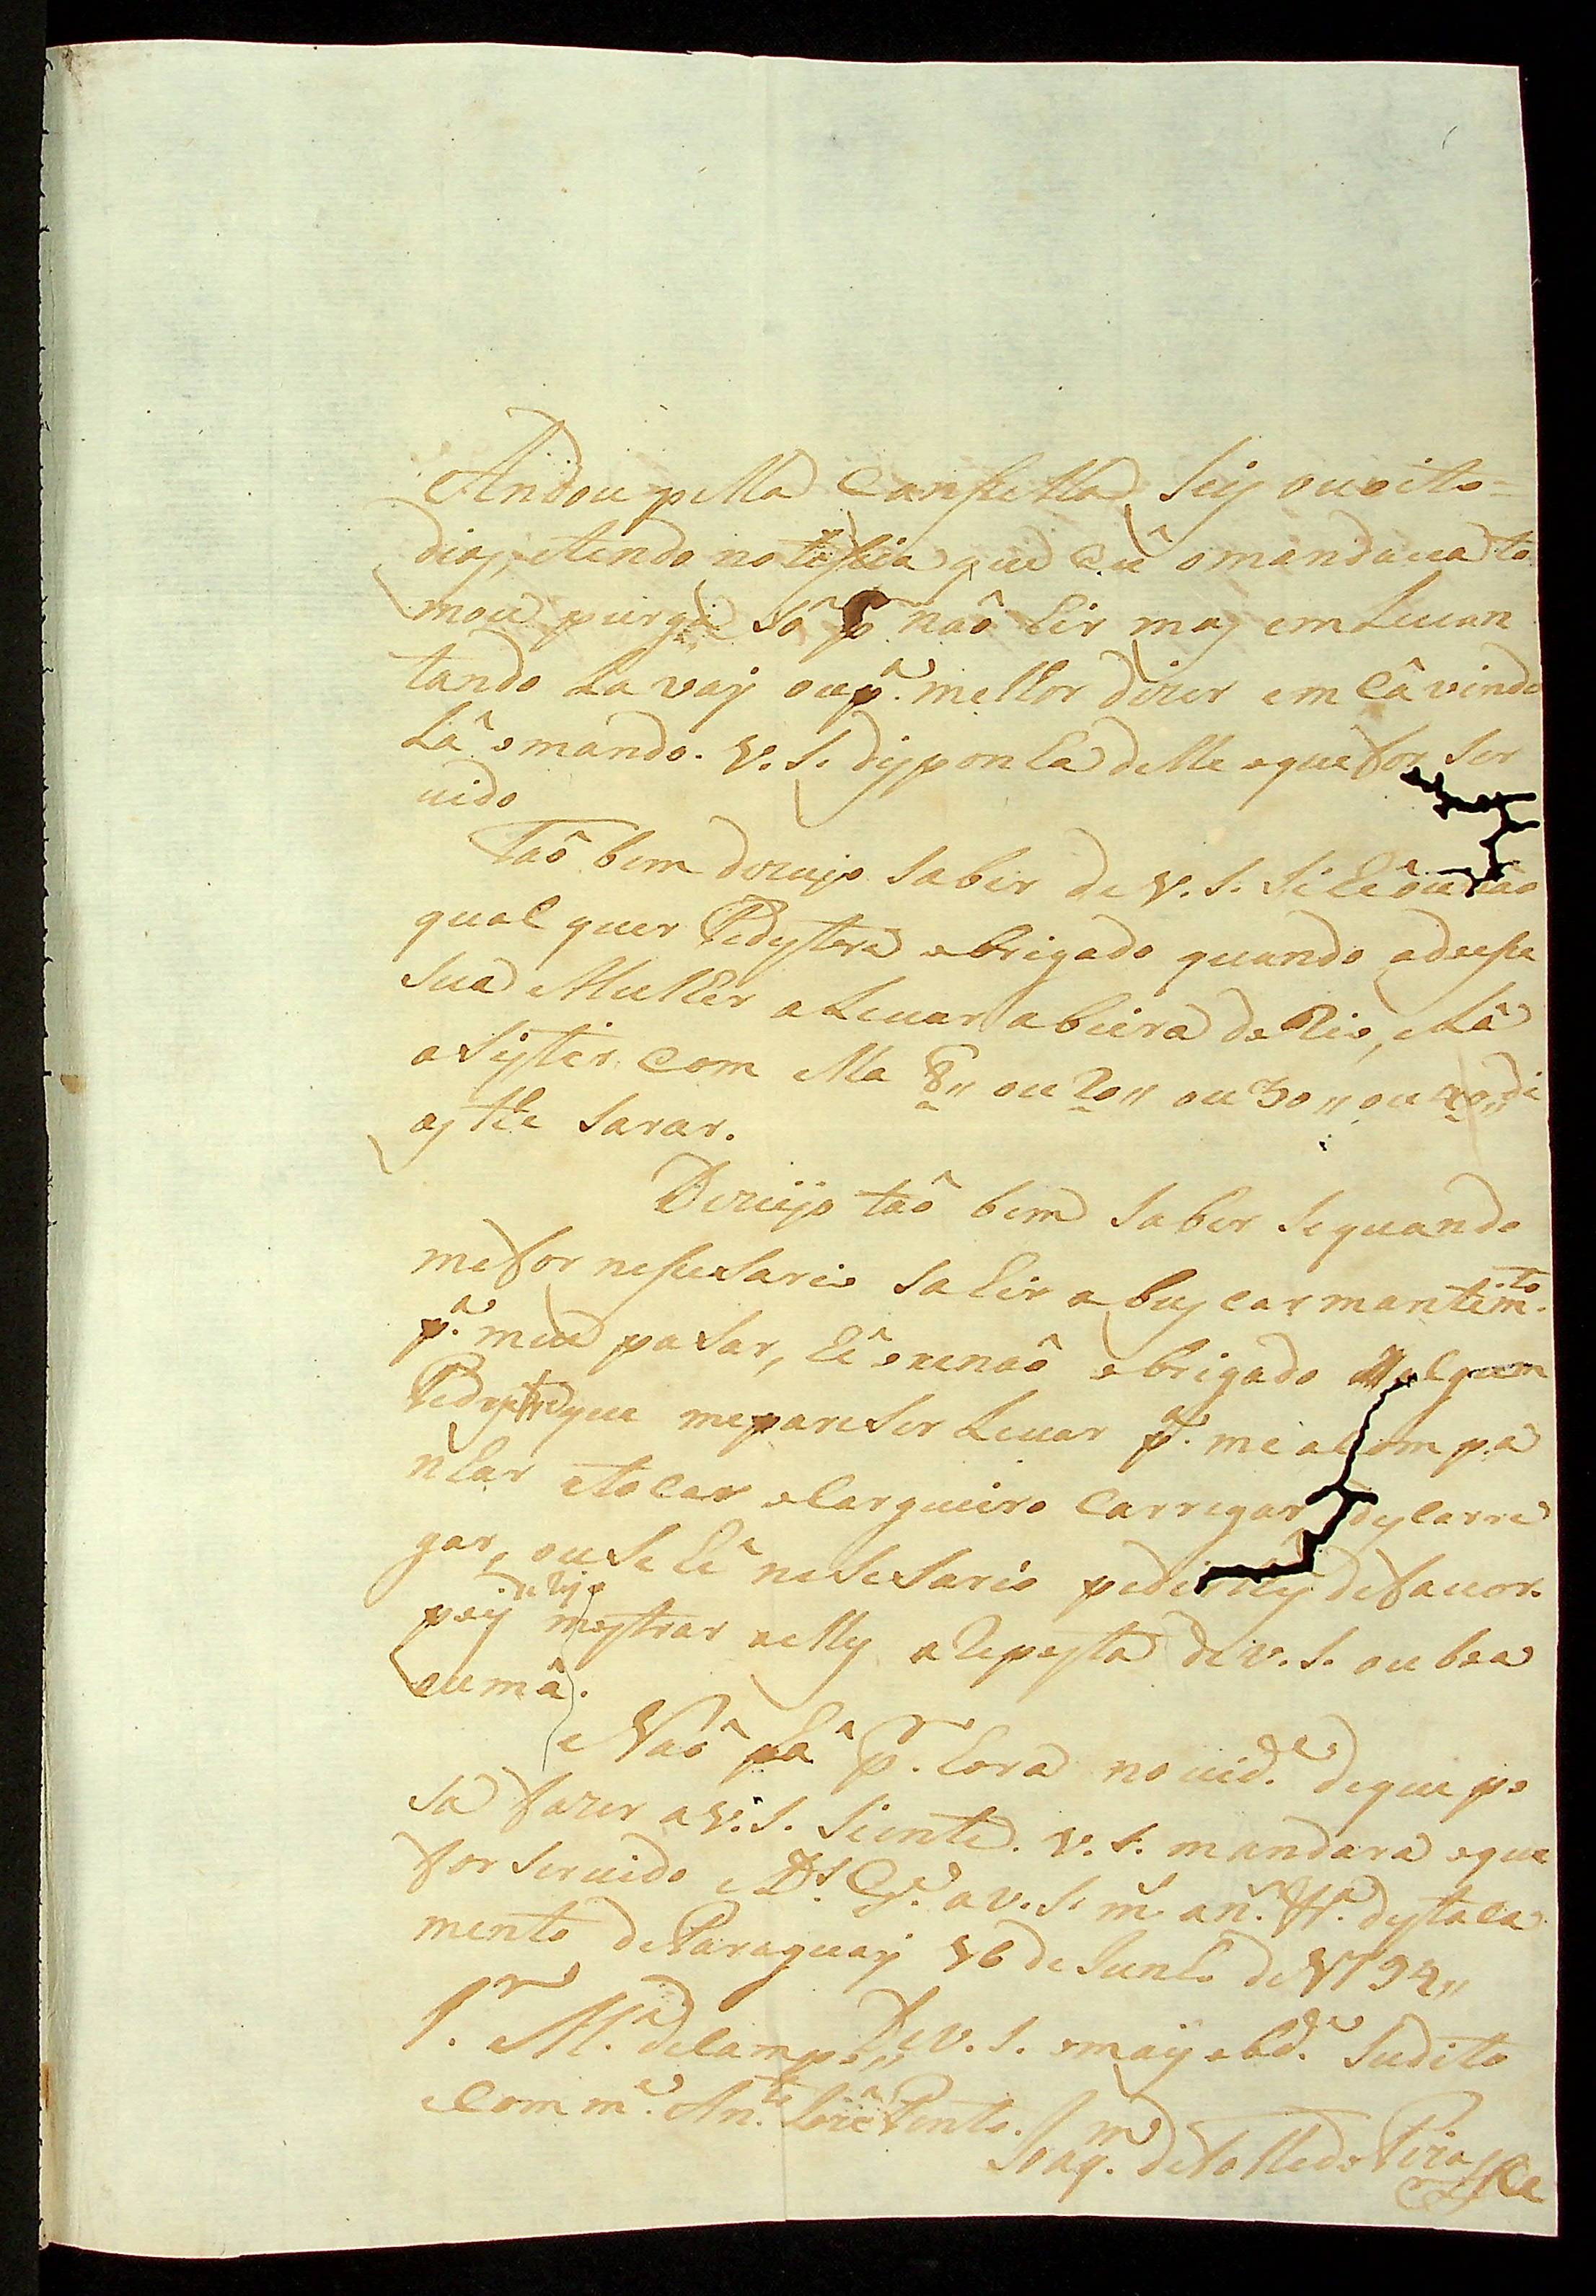 Andou pella Canpella Seis ou oito =
dias, etendo notisia que Eu omandaua to
mou purga Sô p naô hir mas em Leuan
tando La vay ou pª. melhor dizer em Câ vindo
Lâ o mando. V. S. disponha delle o que for Ser
uido
Taô bem dezejo Saber de V. S. Se hê ou não
qual quer Pedestre obrigado quando adoese
Sua Mulher a Leuar a beira do Rio, e Lâ
a Sistir Com ella 8,, ou 20,, ou 30,, ou 40,, di
as thê Sarar.
Dezeijo taô bem Saber Se quando
me for nesesario Sahir a buscar mantimto.
pª. meu pasar, hê ou naô obrigado algum
Pedestre que me pareser Leuar pª. me a Com pa
nhar e tocar o Cargueiro Carregar descarre
gar, ou Se hê neseSario pedir lhes de fauor.
pois dezejo mostrar nelles a Reposta de V. S. ou boa
ou mâ.
Naô hâ pr. hora nouide. de que po
sa fazer a V. S. Siente. V. S. mandara o que
for Seruido Ds. Ge. a V. S. ms. ans. Fª. destaca
mento de Paraguay 16 de Junho de 1794,,
Sr. M. de Campo,, De V. S. o mais obde. Sudito
e Comme. Anto. Joze Pinto.
Joaqm. de Tolledo Piza